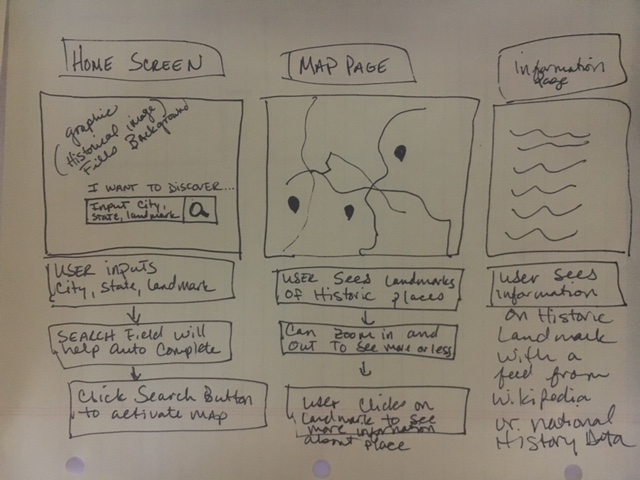 HOME SCREEN
graphic
(Historical image)
Fields Background
I WANT TO DISCOVER...
Input City,
State, landmark
USER inputs
City, state, landmark
SEARCH Field will
help auto complete
Click Search Button
to activate MAP
MAP PAGE
USER Sees landmarks
of Historic places
Can zoom in and
out To see more or less
User Clicks on
landmark to see
more information
about place
Information
Page
User sees
information
on Historic
Landmark
with a
feed from
Wikipedia
or National
History Data